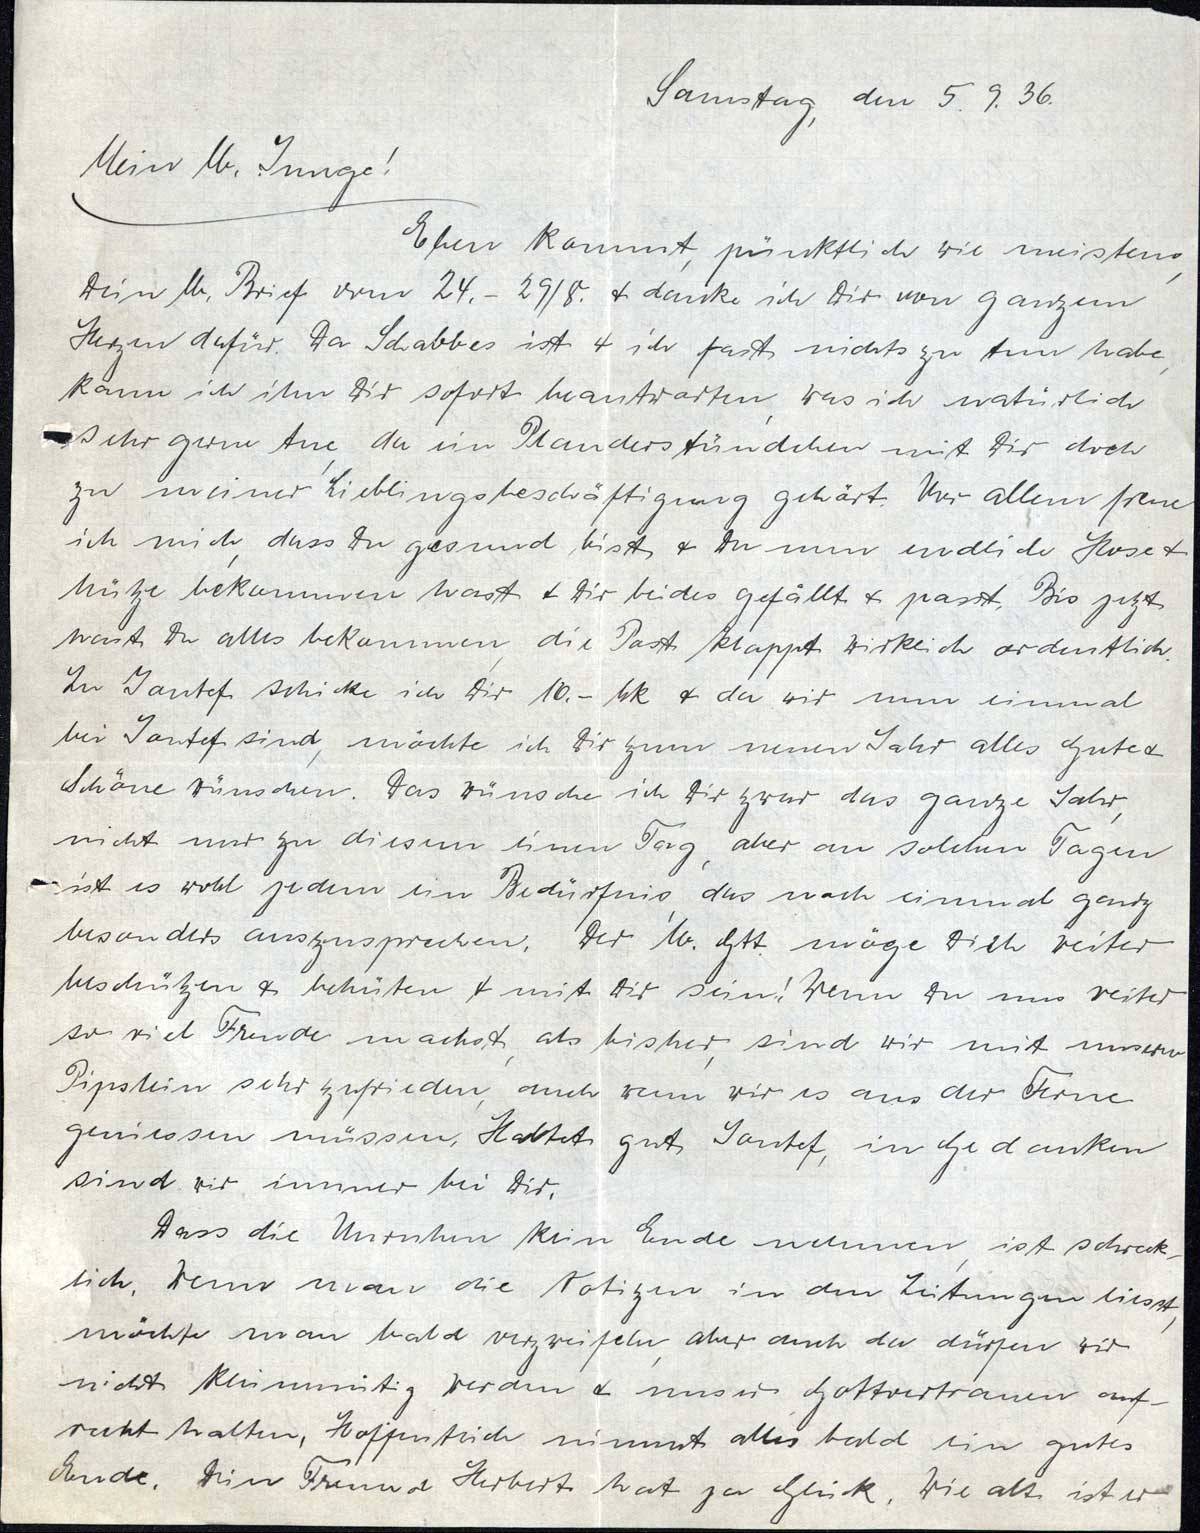 Samstag, den 5. 9. 36.
Mein lb. Junge!
Eben kommt, pünktlich wie meistens,
Dein lb. Brief vom 24.- 29/8. & danke ich Dir von ganzem
Herzen dafür. Da Schabbes ist & ich fast nichts zu tun habe,
kann ich ihn Dir sofort beantworten, was ich natürlich
sehr gerne tue, da ein Plauderstündchen mit Dir doch
zu meiner Lieblingsbeschäftigung gehört. Vor allem freue
ich mich, dass Du gesund bist & Du nun endlich Hose &
Mütze bekommen hast & Dir beides gefällt & passt. Bis jetzt
hast Du alles bekommen, die Post klappt wirklich ordentlich.
Zu Jontef schicke ich Dir 10.- Mk & da wir nun einmal
bei Jontef sind, möchte ich Dir zum neuen Jahr alles Gute &
Schöne wünschen. Das wünsche ich Dir zwar das ganze Jahr,
nicht nur zu diesem einen Tag, aber an solchen Tagen
ist es wohl jedem ein Bedürfnis, das noch einmal ganz
besonders auszusprechen. Der lb. Gtt. möge Dich weiter
beschützen & behüten & mit Dir sein! Wenn Du uns weiter
so viel Freude machst, als bisher, sind wir mit unserm
Pipslein sehr zufrieden, auch wenn wir es aus der Ferne
geniessen müssen. Haltet gut Jontef, in Gedanken
sind wir immer bei Dir.
Dass die Unruhen kein Ende nehmen, ist schreck-
lich. Wenn man die Notizen in den Zeitungen liesst,
möchte man bald verzweifeln, aber auch da dürfen wir
nicht kleinmütig werden & unser Gottvertrauen auf-
recht halten. Hoffentlich nimmt alles bald ein gutes
Ende. Dein Freund Herbert hat ja Glück. Wie alt ist er